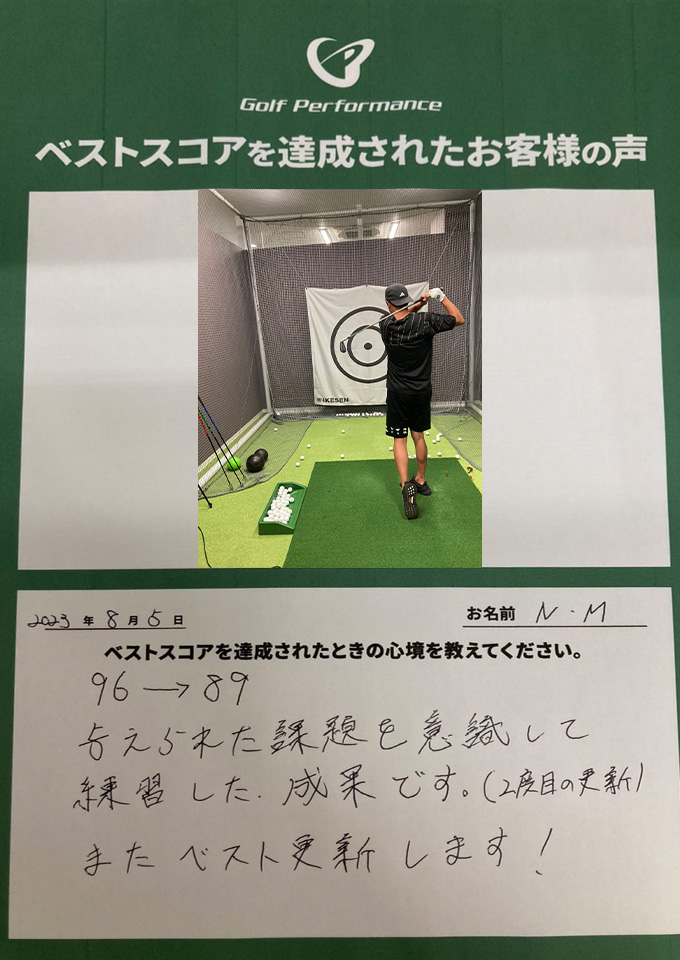 Golf Performance
ベストスコアを達成されたお客様の声
IKESEN
2023 年 8 月 5 日
お名前 N・M
ベストスコアを達成されたときの心境を教えてください。
96 → 89
与えられた課題を意識して
練習した.成果です。(2度目の更新)
またベスト更新します!